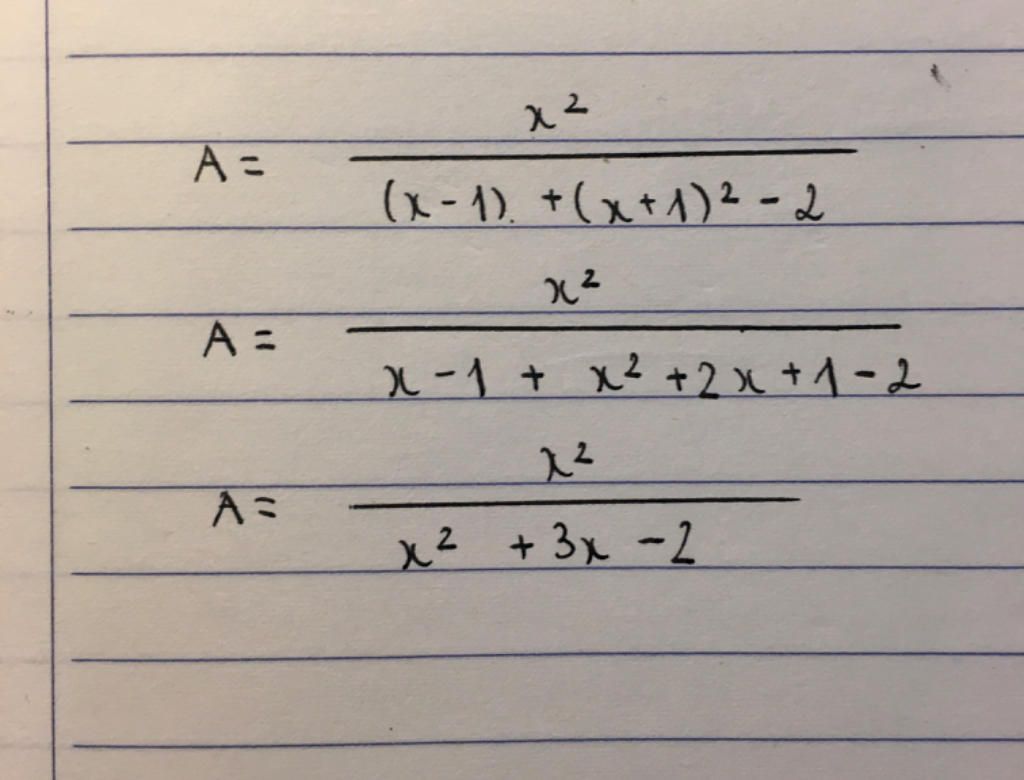 A = x² / ((x-1) + (x+1)² - 2)
A = x² / (x - 1 + x² + 2x + 1 - 2)
A = x² / (x² + 3x - 2)